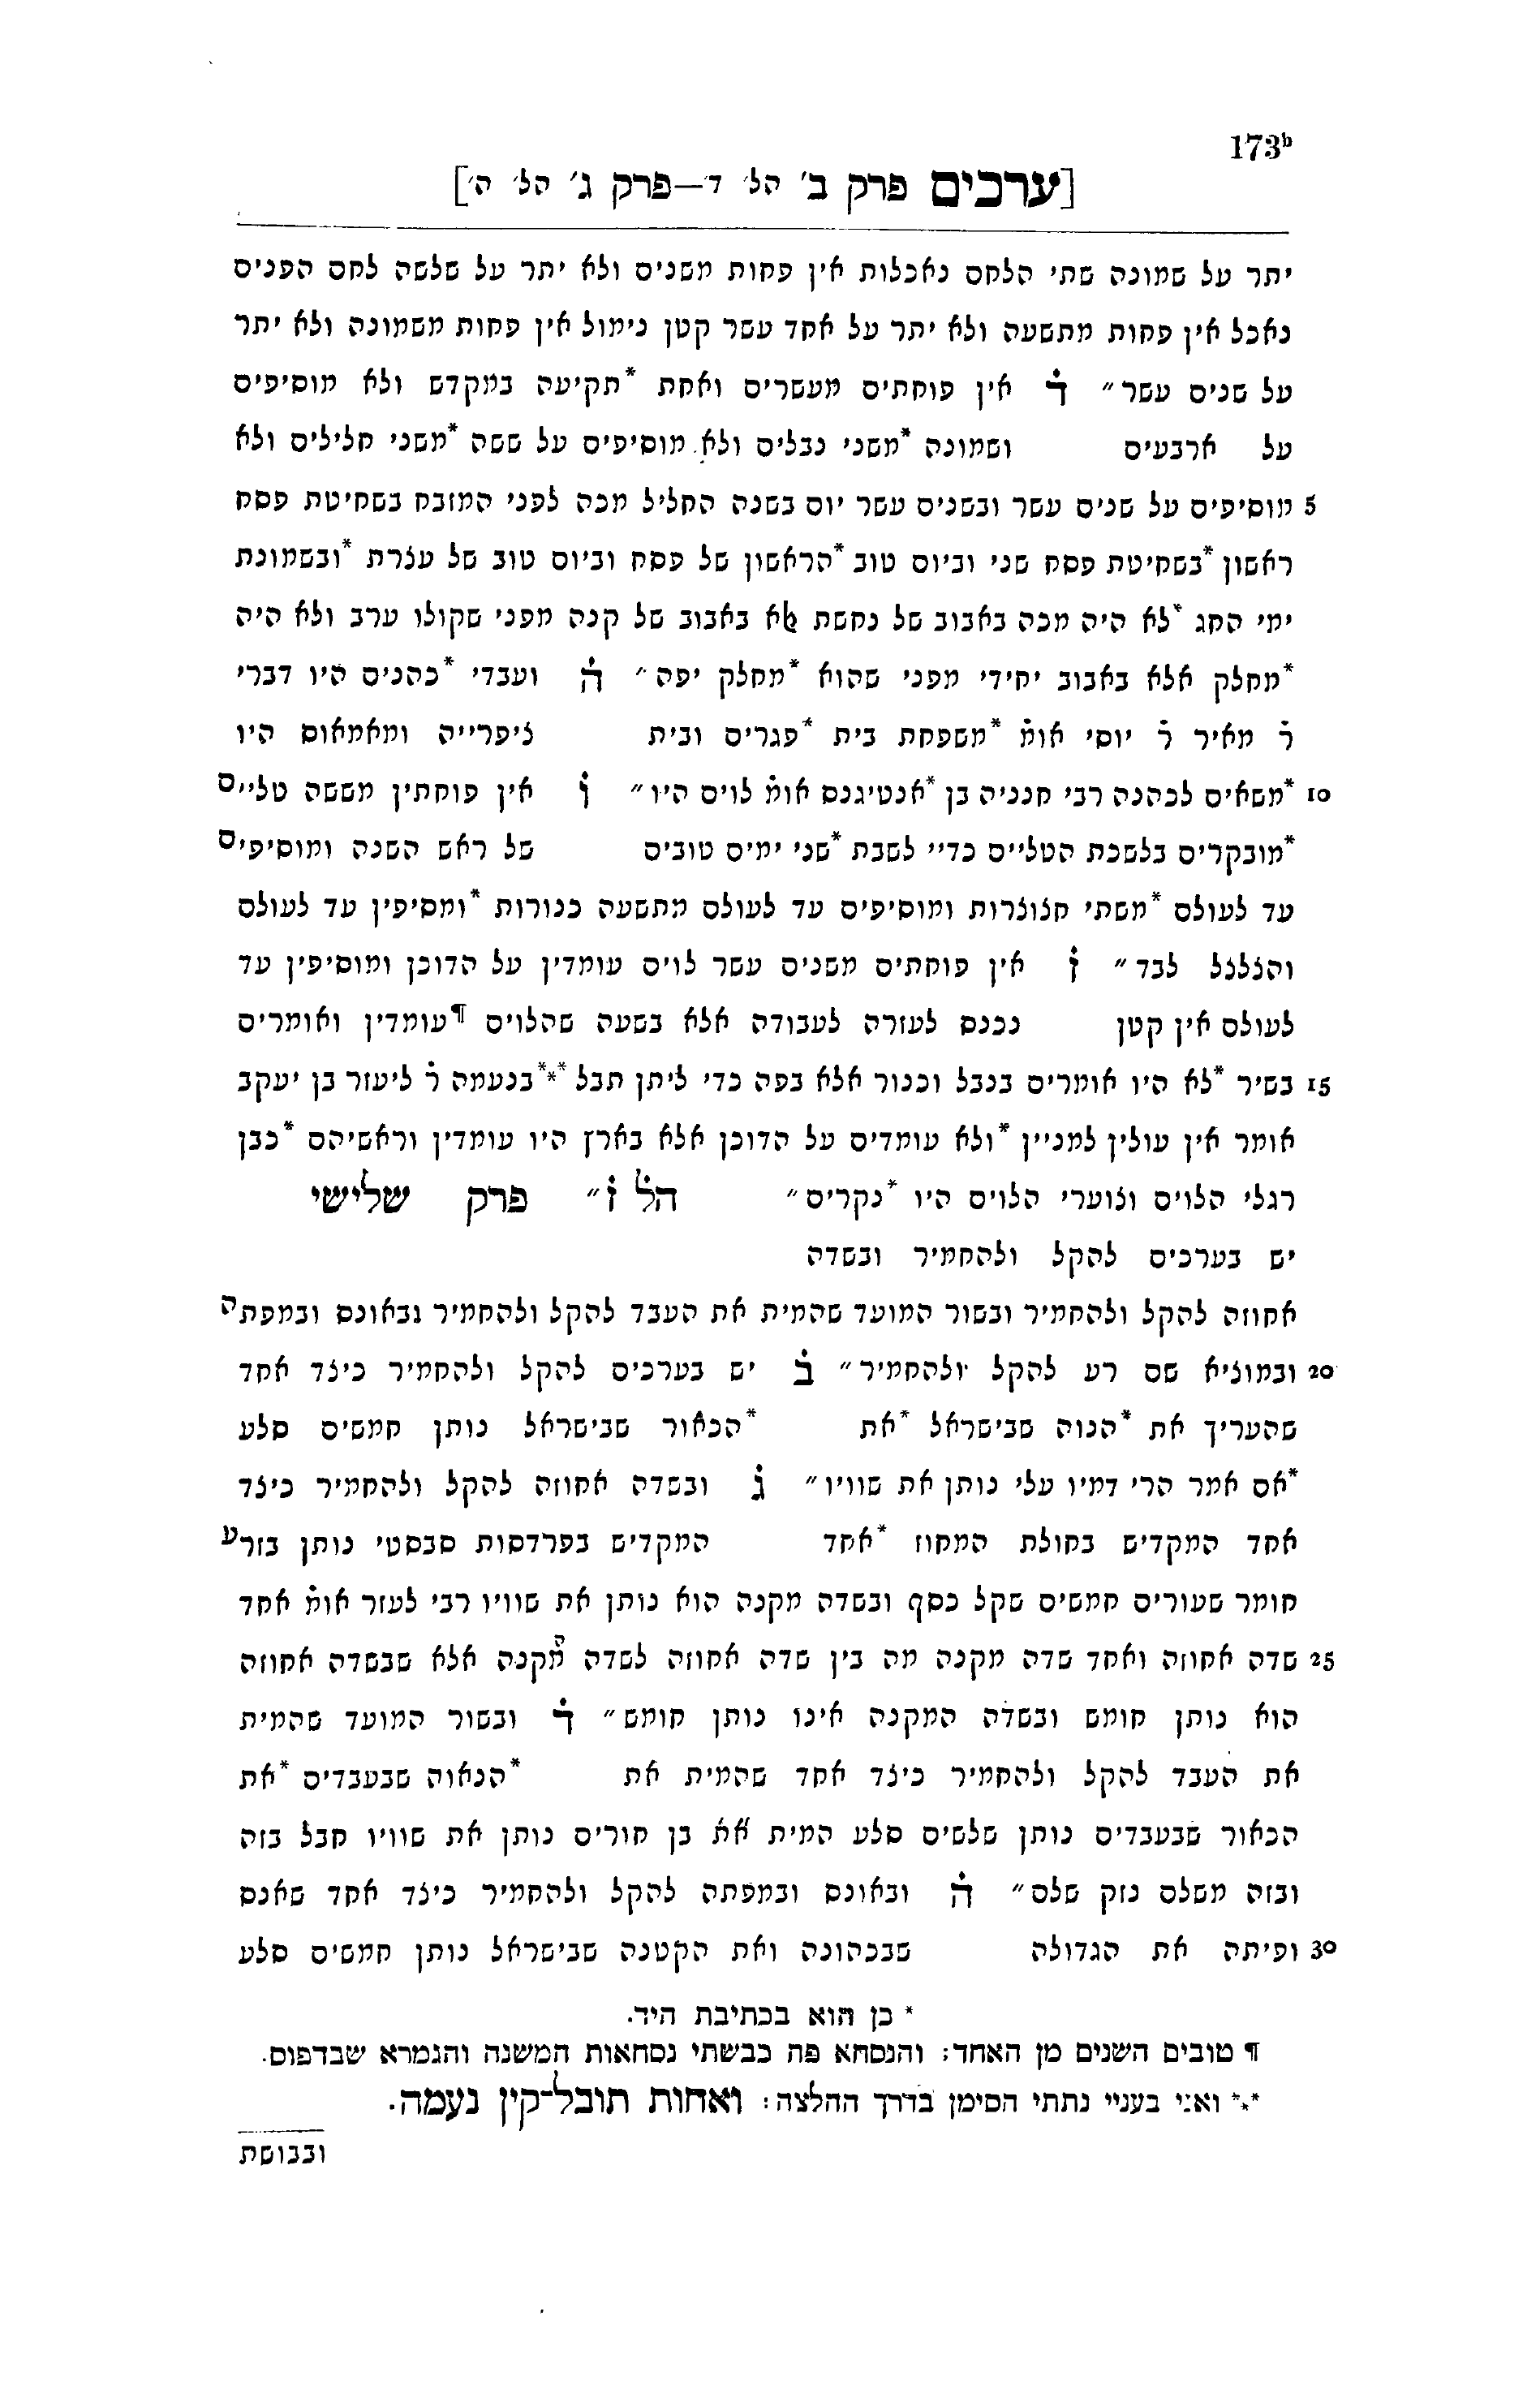 173b
[ערכים פרק ב׳ הל׳ ד׳—פרק ג׳ הל׳ ה׳]
יתר על שמונה שתי הלחם נאכלות אין פחות משנים ולא יתר על שלשה לחם הפנים
נאכל אין פחות מתשעה ולא יתר על אחד עשר קטן נימול אין פחות משמונה ולא יתר
על שנים עשר״ ד֗ אין פוחתים מעשרים ואחת *תקיעה במקדש ולא מוסיפים
על ארבעים ושמונה *משני נבלים ולא מוסיפים על ששה *משני חלילים ולא
5 מוסיפים על שנים עשר ובשנים עשר יום בשנה החליל מכה לפני המזבח בשחיטת פסח
ראשון *בשחיטת פסח שני וביום טוב *הראשון של פסח וביום טוב של עצרת *ובשמונת
ימי החג *לא היה מכה באבוב של נחשת אלא באבוב של קנה מפני שקולו ערב ולא היה
*מחלק אלא באבוב יחידי מפני שהוא *מחלק יפה״ ה֗ ועבדי *כהנים היו דברי
ר֗ מאיר ר֗ יוסי אומ֗ *משפחת בית *פגרים ובית ציפרייה ומאמאום היו
10 *משאים לכהנה רבי חנניה בן *אנטיגנס אומ֗ לוים היו״ ו֗ אין פוחתין מששה טליים
*מובקרים בלשכת הטליים כדיי לשבת *שני ימים טובים של ראש השנה ומוסיפים
עד לעולם *משתי חצוצרות ומוסיפים עד לעולם מתשעה כנורות *ומסיפין עד לעולם
והצלצל לבד״ ז֗ אין פוחתים משנים עשר לוים עומדין על הדוכן ומוסיפין עד
לעולם אין קטן נכנס לעזרה לעבודה אלא בשעה שהלוים ¶עומדין ואומרים
15 בשיר *לא היו אומרים בנבל וכנור אלא בפה כדי ליתן תבל ***בנעמה ר֗ ליעזר בן יעקב
אומר אין עולין למניין *ולא עומדים על הדוכן אלא בארץ היו עומדין וראשיהם *כבן
רגלי הלוים וצוערי הלוים היו *נקרים״ הל֗ ז֗״ פרק שלישי
יש בערכים להקל ולהחמיר ובשדה
אחוזה להקל ולהחמיר ובשור המועד שהמית את העבד להקל ולהחמיר ובאונס ובמפתה
20 ובמוציא שם רע להקל ולהחמיר״ ב֗ יש בערכים להקל ולהחמיר כיצד אחד
שהעריך את *הנוה שבישראל *את *הכאור שבישראל נותן חמשים סלע
*אם אמר הרי דמיו עלי נותן את שוויו״ ג֗ ובשדה אחוזה להקל ולהחמיר כיצד
אחד המקדיש בחולת המחוז *אחד המקדיש בפרדסות סבסטי נותן בזרע
חומר שעורים חמשים שקל כסף ובשדה מקנה הוא נותן את שוויו רבי לעזר אומ֗ אחד
25 שדה אחוזה ואחד שדה מקנה מה בין שדה אחוזה לשדה מקנה אלא שבשדה אחוזה
הוא נותן חומש ובשדה המקנה אינו נותן חומש״ ד֗ ובשור המועד שהמית
את העבד להקל ולהחמיר כיצד אחד שהמית את *הנאוה שבעבדים *את
הכאור שבעבדים נותן שלשים סלע המית את בן חורים נותן את שוויו חבל בזה
ובזה משלם נזק שלם״ ה֗ ובאונס ובמפתה להקל ולהחמיר כיצד אחד שאנס
30 ופיתה את הגדולה שבכהונה ואת הקטנה שבישראל נותן חמשים סלע
* כן הוא בכתיבת היד.
¶ טובים השנים מן האחד: והנסחא פה כבשתי נסחאות המשנה והגמרא שבדפוס.
*** ואני בעניי נתתי הסימן בדרך ההלצה: ואחות תובל־קין נעמה.
ובבושת